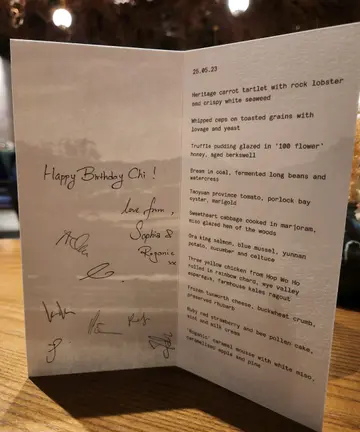 Happy Birthday Chi !
love from,
Sophia &
Roganic
xx
26.05.23
Heritage carrot tartlet with rock lobster
and crispy white seaweed
Whipped ceps on toasted grains with
lovage and yeast
Truffle pudding glazed in '100 flower'
honey, aged berkswell
Bream in coal, fermented long beans and
watercress
Taoyuan province tomato, porlock bay
oyster, marigold
Sweetheart cabbage cooked in marjoram,
miso glazed hen of the woods
Ora king salmon, blue mussel, yunnan
potato, cucumber and caltuce
Three yellow chicken from Hop Wo Ho
rolled in rainbow chard, wye valley
asparagus, farmhouse kales ragout
Frozen tunworth cheese, buckwheat crumb,
preserved rhubarb
Ruby red strawberry and bee pollen cake,
mint and milk cream
'Roganic' caramel mousse with white miso,
caramelised apple and pine